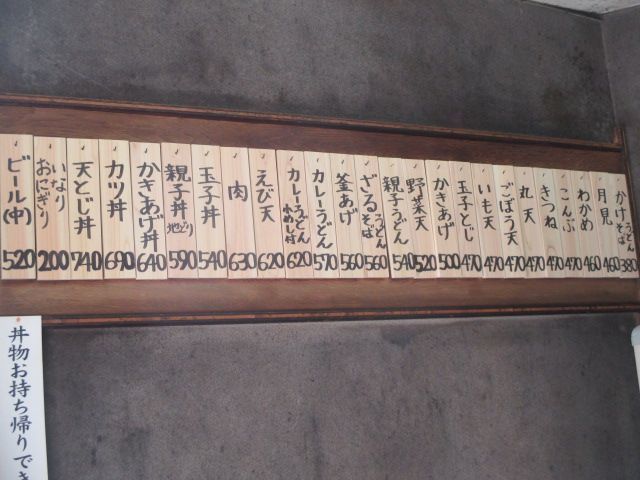 かけ うどん そば 380
月見 460
わかめ 460
こんぶ 470
きつね 470
丸天 470
ごぼう天 470
いも天 470
玉子とじ 470
かきあげ 500
野菜天 520
親子うどん 540
ざる うどん そば 560
釜あげ 560
カレーうどん 570
カレーうどん 小めし付 620
えび天 620
肉 630
玉子丼 540
親子丼 地どり 590
かきあげ丼 640
カツ丼 690
天とじ丼 740
いなり おにぎり 200
ビール(中) 520
丼物お持ち帰りでき